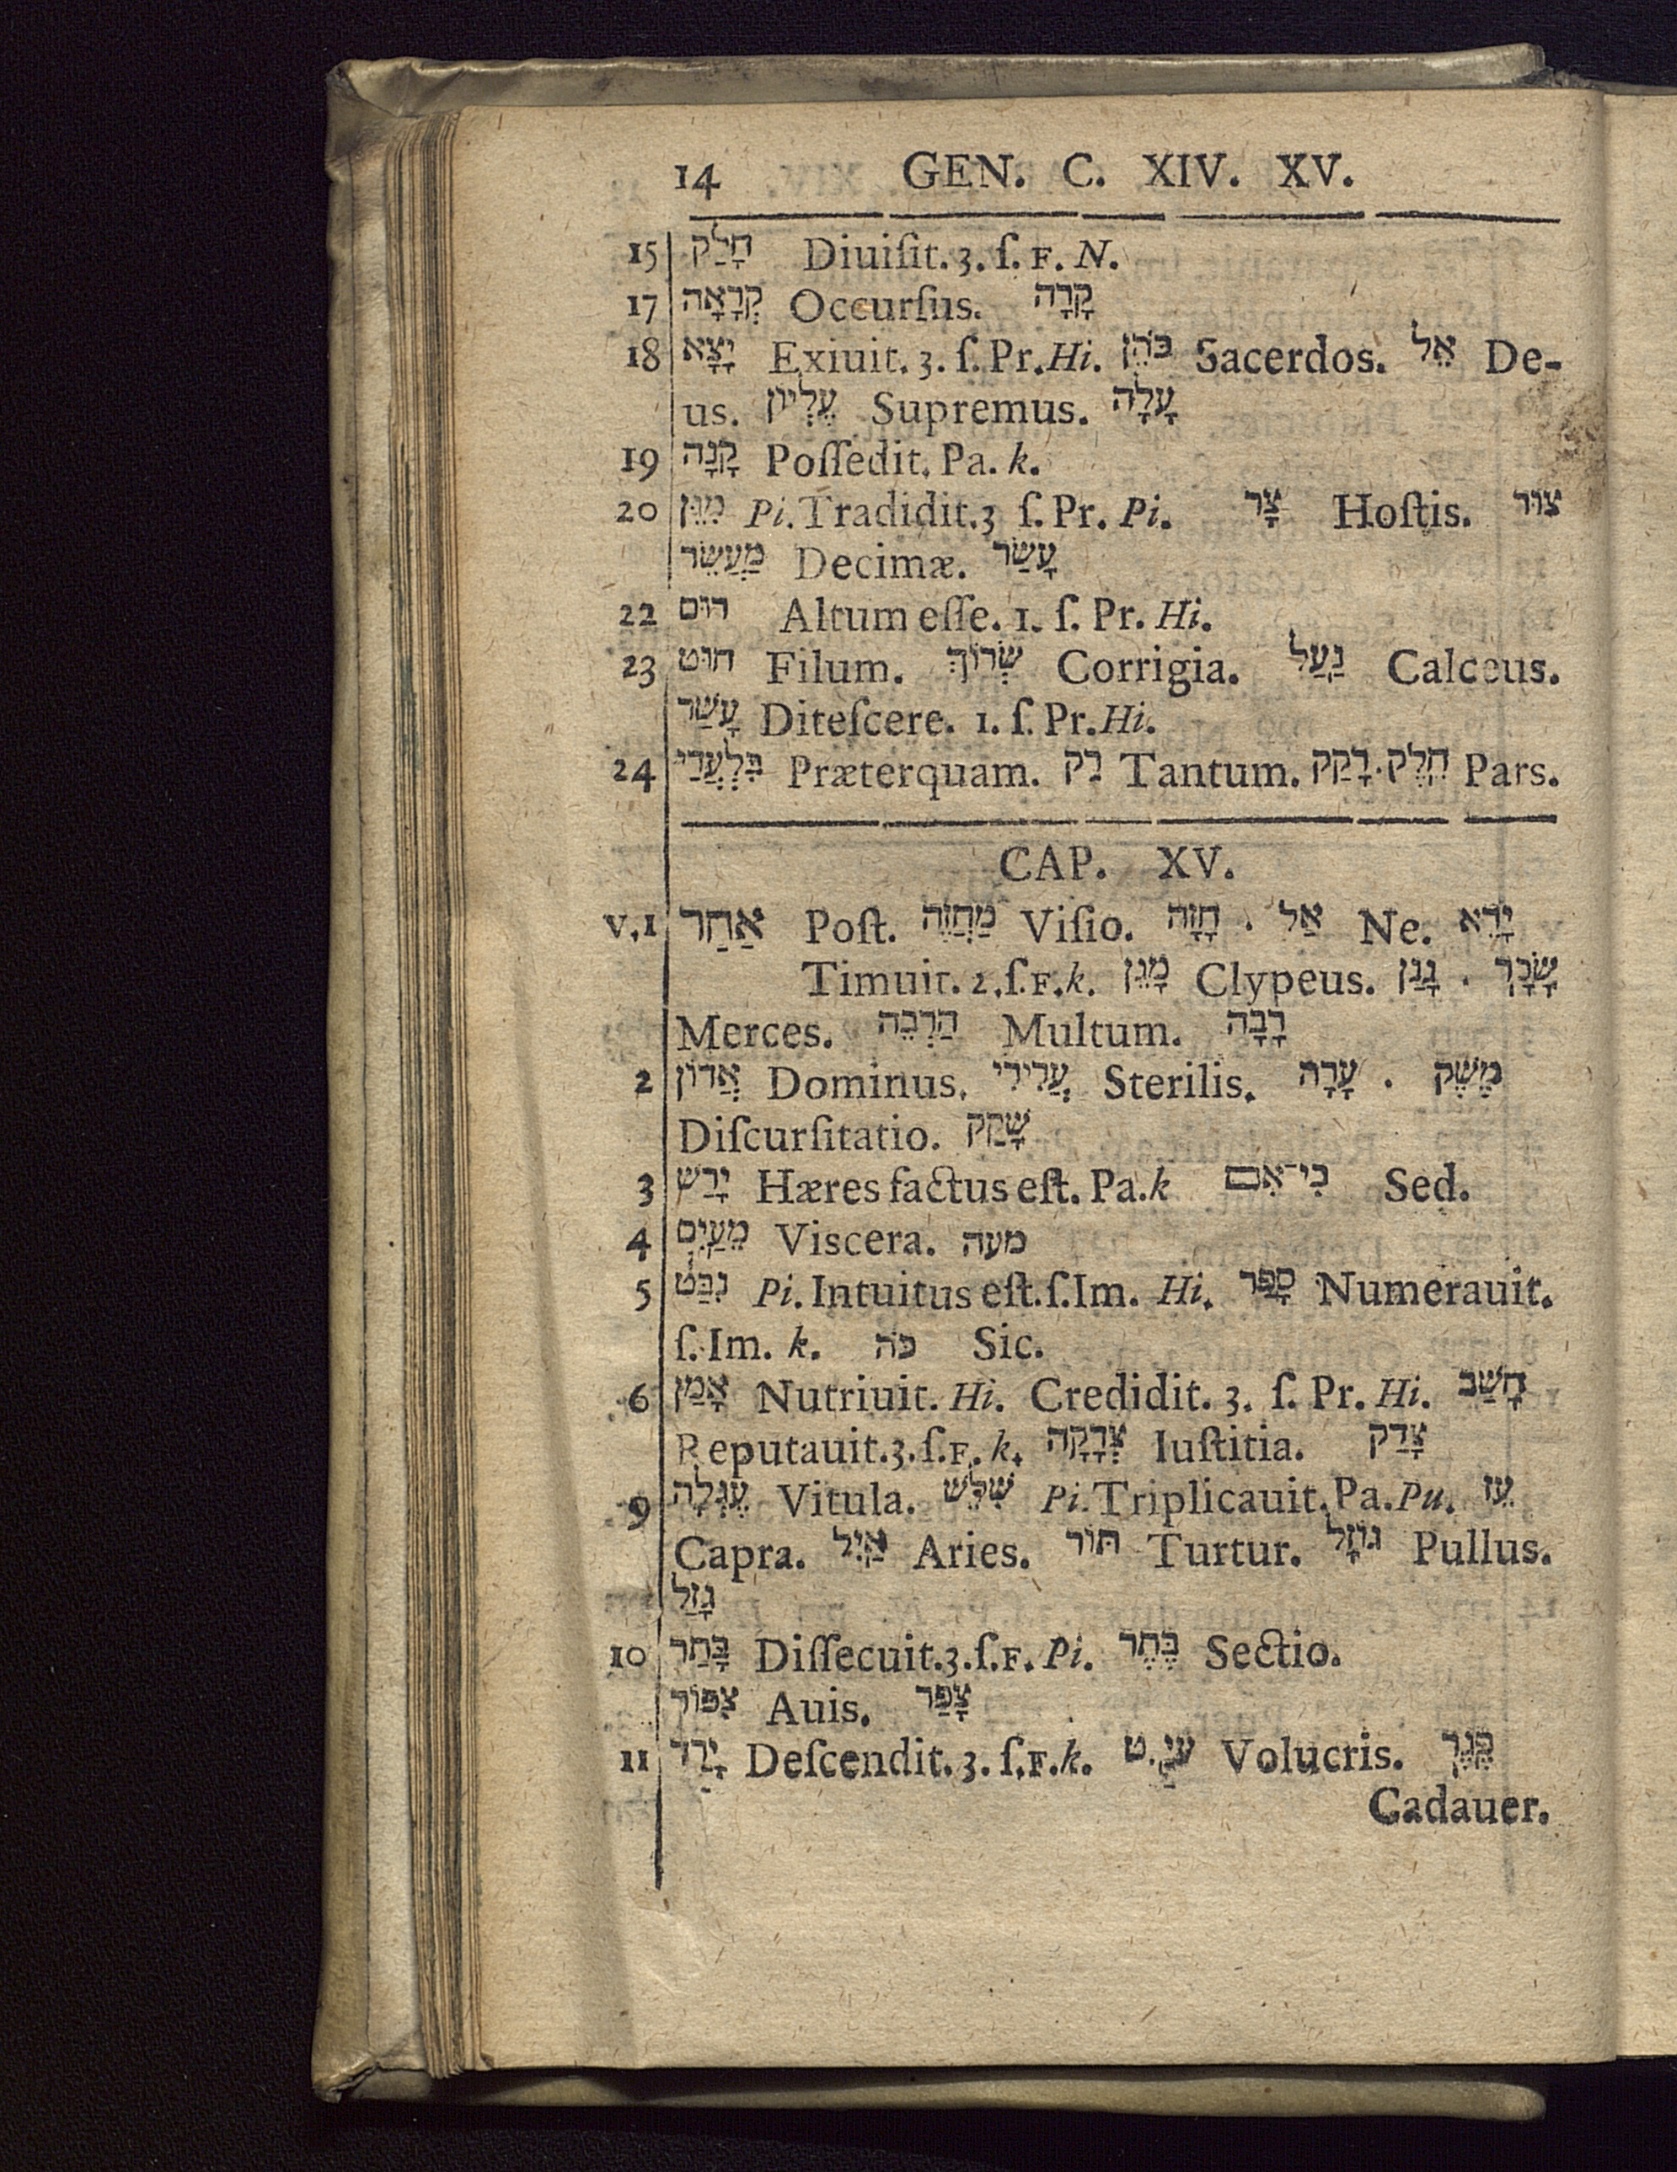 14 GEN. C. XIV. XV.
15 חָלַק Diuiſit. 3. ſ. F. N.
17 קְרָאָה Occurſus. קָרָה
18 יָצָא Exiuit. 3. ſ. Pr. Hi. כֹּהֵן Sacerdos. אֵל De-
us. עֶלְיוֹן Supremus. עָלָה
19 קָנָה Poſſedit. Pa. k.
20 מִגֵּן Pi. Tradidit. 3 ſ. Pr. Pi. צָר Hoſtis. צוּר
מַעֲשֵׂר Decimæ. עָשַׂר
22 רוּם Altum eſſe. 1. ſ. Pr. Hi.
23 חוּט Filum. שְׂרוֹךְ Corrigia. נַעַל Calceus.
עָשַׁר Diteſcere. 1. ſ. Pr. Hi.
24 בִּלְעֲדֵי Præterquam. רַק Tantum. רָקַק. חֵלֶק Pars.
CAP. XV.
V. 1 אַחַר Poſt. מַחֲזֶה Viſio. חָזָה . אַל Ne. יָרֵא
Timuit. 2. ſ. F. k. מָגֵן Clypeus. גָנַן . שָׂכָר
Merces. הַרְבֵּה Multum. רָבָה
2 אֲדוֹן Dominus. עֲרִירִי Sterilis. עָרָה . מֶשֶׁק
Diſcurſitatio. שָׁקַק
3 יָרַשׁ Hæres factus eſt. Pa. k כִּי־אִם Sed.
4 מֵעַיִם Viscera. מעה
5 נִבַּט Pi. Intuitus eſt. ſ. Im. Hi. סָפַר Numerauit.
ſ. Im. k. כֹּה Sic.
6 אָמַן Nutriuit. Hi. Credidit. 3. ſ. Pr. Hi. חָשַׁב
Reputauit. 3. ſ. F. k. צְדָקָה Iuſtitia. צָדַק
9 עֶגְלָה Vitula. שִׁלֵּשׁ Pi. Triplicauit. Pa. Pu. עֵז
Capra. אַיִל Aries. תּוֹר Turtur. גּוֹזָל Pullus.
גָּזַל
10 בָּתַר Diſſecuit. 3. ſ. F. Pi. בֶּתֶר Sectio.
צִפּוֹר Auis. צָפַר
11 יָרַד Deſcendit. 3. ſ. F. k. עַיִט Volucris. פֶּגֶר
Cadauer.